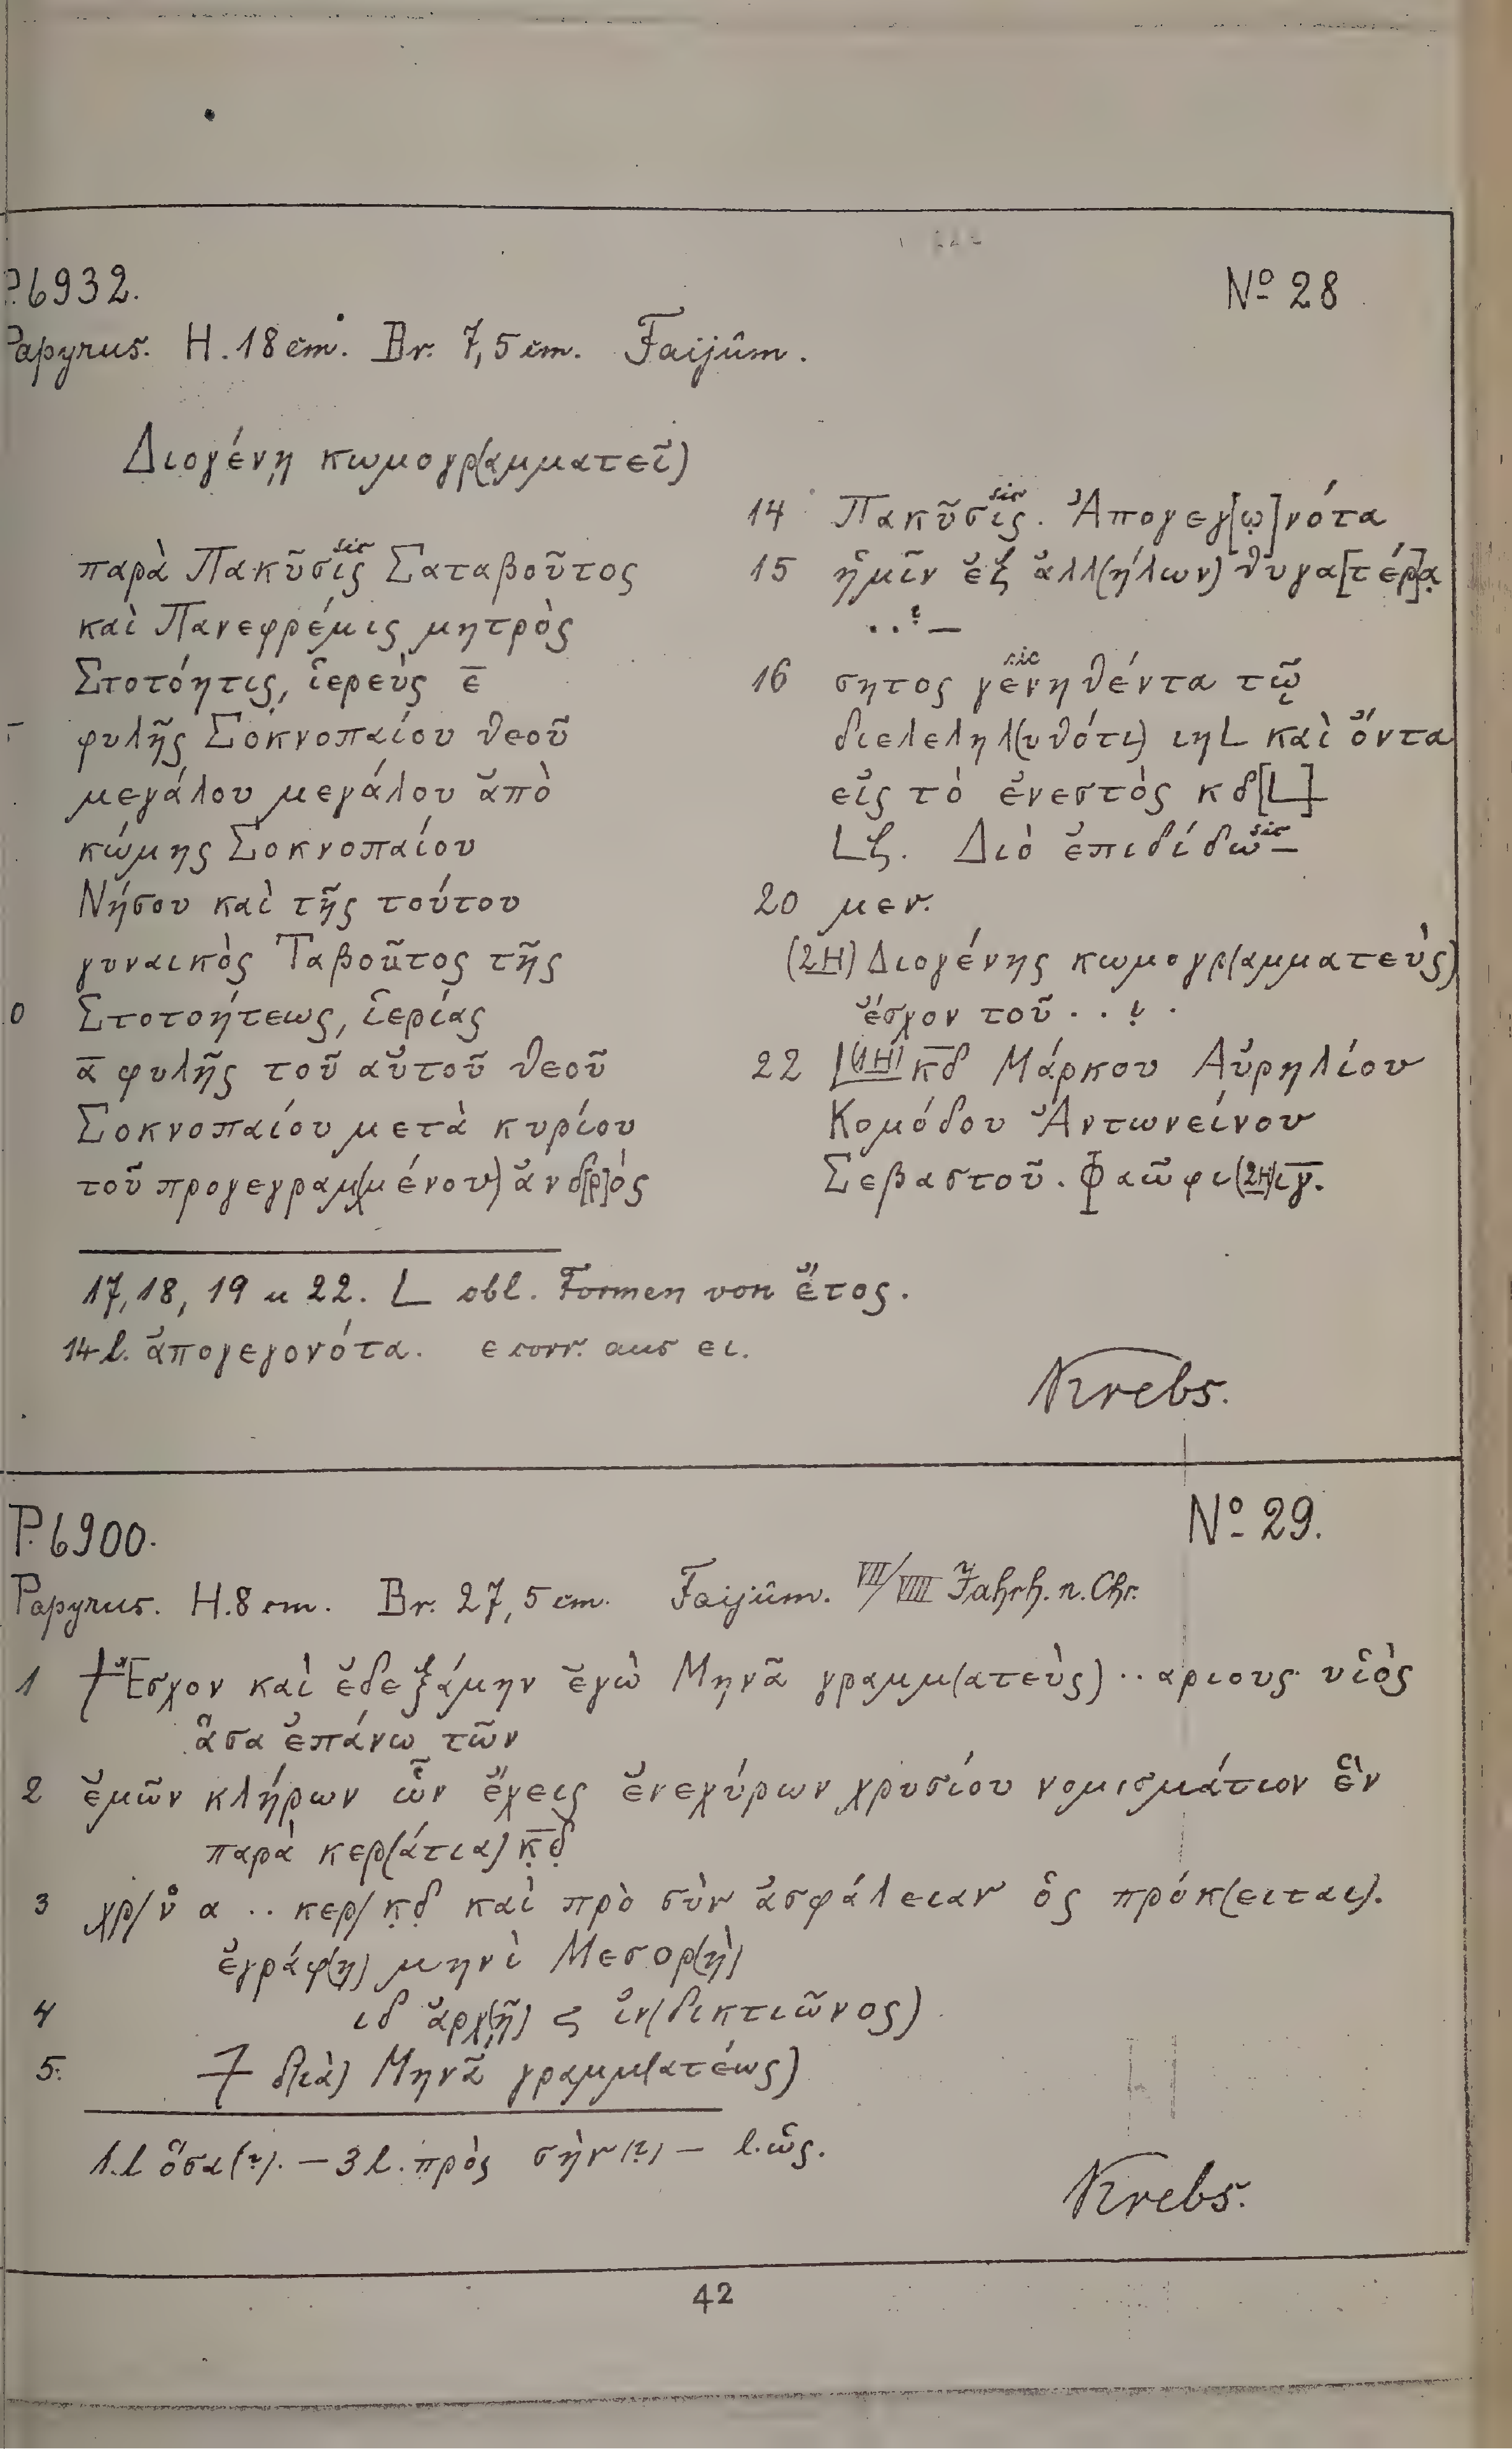 P.6932.
Nº 28
Papyrus. H. 18 cm. Br. 7,5 cm. Faijûm.
Διογένῃ κωμογρ(αμματεῖ)
παρὰ Πακῦσις sic Σαταβοῦτος
καὶ Πανεφρέμις μητρὸς
Στοτόητις, ἱερεὺς ε̅
φυλῆς Σοκνοπαίου θεοῦ
μεγάλου μεγάλου ἀπὸ
κώμης Σοκνοπαίου
Νήσου καὶ τῆς τούτου
γυναικὸς Ταβοῦτος τῆς
0 Στοτοήτεως, ἱερίας
α̅ φυλῆς τοῦ αὐτοῦ θεοῦ
Σοκνοπαίου μετὰ κυρίου
τοῦ προγεγραμ(μένου) ἀνδ[ρ]ός
14 Πακῦσις sic. Ἀπογεγ[ω̣]νότα
15 ἡμῖν ἐξ ἀλλ(ήλων) θυγα[τέρ]α̣
..ι̣—
16 σητος γενηθέντα sic τῷ
διεληλ(υθότι) ιηL καὶ ὄντα
εἰς τὸ ἐνεστὸς κδ[L]
Lζ. Διὸ ἐπιδίδω sic—
20 μεν.
(2H) Διογένης κωμογρ(αμματεὺς)
ἔσχον τοῦ . . ι̣ .
22 L(1H) κ̅δ̅ Μάρκου Αὐρηλίου
Κομόδου Ἀντωνείνου
Σεβαστοῦ. Φαῶφι (2H) ι̅γ̅.
17, 18, 19 u 22. L obl. Formen von ἔτος.
14 l. ἀπογεγονότα. ε corr. aus ει.
Krebs.
P.6900.
Nº 29.
Papyrus. H. 8 cm. Br. 27,5 cm. Faijûm. VII/VIII Jahrh. n. Chr.
1 ┼ Ἔσχον καὶ ἐδεξάμην ἐγὼ Μηνᾶ γραμμ(ατεὺς) ..αριους υἱὸς
ἅσα ἐπάνω τῶν
2 ἐμῶν κλήρων ὧν ἔχεις ἐνεχύρων χρυσίου νομισμάτιον ἓν
παρὰ κερ(άτια) κ̣̅δ̣̅
3 χρ/ ν̊ α .. κερ/ κ̣δ̣ καὶ πρὸ σὺν ἀσφάλειαν ὁς πρόκ(ειται).
ἐγράφ(η) μηνὶ Μεσορ(ὴ)
4 ιδ ἀρχ(ῇ) ς ἰν(δικτιῶνος)
5. ┼ δ(ιὰ) Μηνᾶ γραμμ(ατέως)
1. l ὅσα(?). — 3 l. πρὸς σὴν(?) — l. ὡς.
Krebs.
42